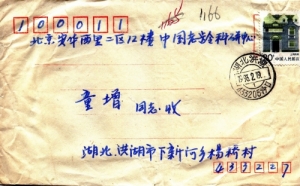 100011
1166
北京安华西里二区12楼中国老龄科研中心
20
中国人民邮政
童增 同志 收
湖北洪湖市下新河乡杨桥村
433227